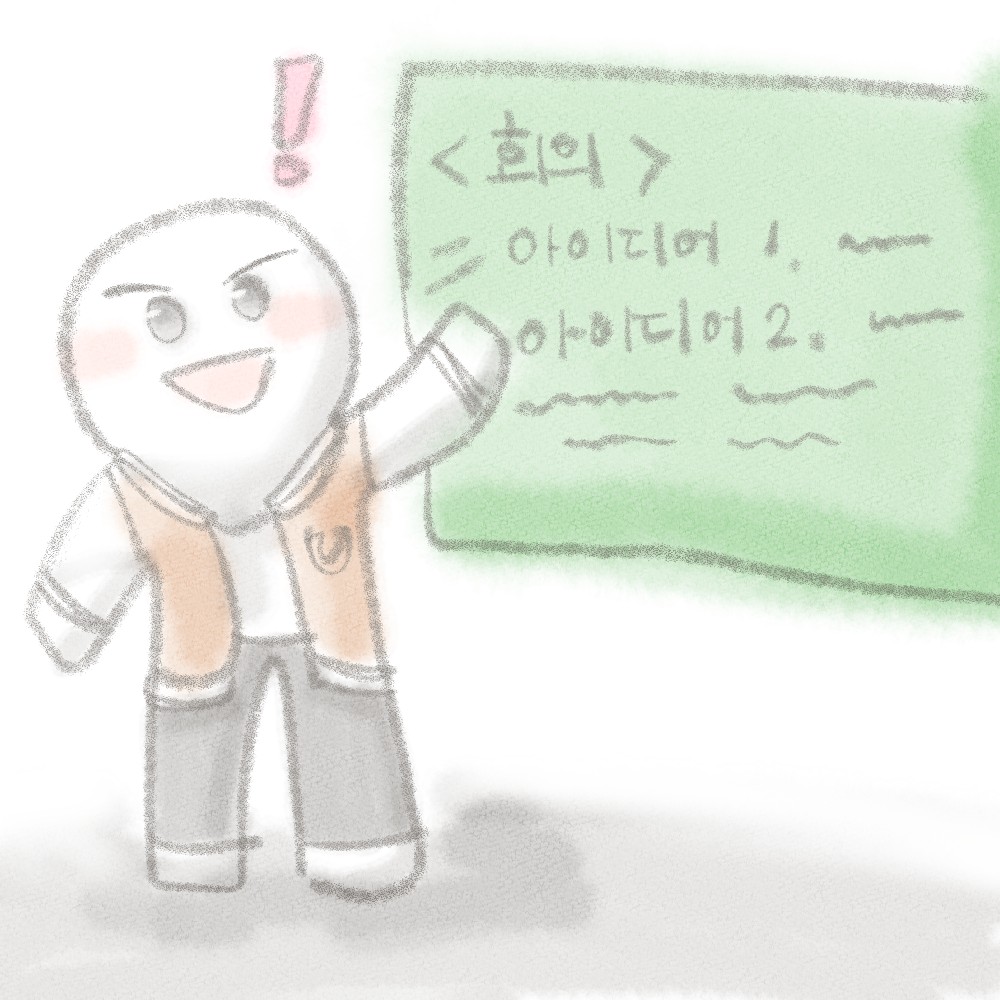 !
< 회의 >
아이디어 1.
아이디어 2.